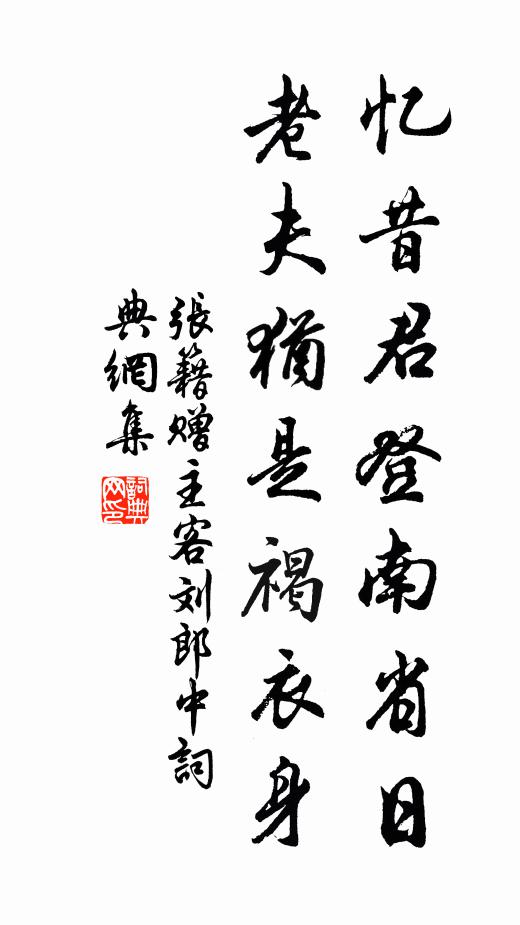 忆昔君登南省日
老夫猶是褐衣身
張籍赠主客刘郎中詞
典網集
詞典
网印